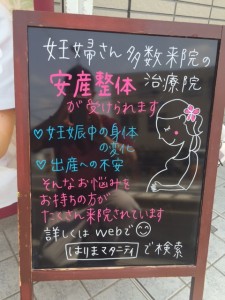 妊婦さん多数来院の
安産整体 治療院
が受けられます
♡妊娠中の身体
の変化
♡出産への不安
そんなお悩みを
お持ちの方が
たくさん来院されています
詳しくはwebで
はりまマタニティ で検索